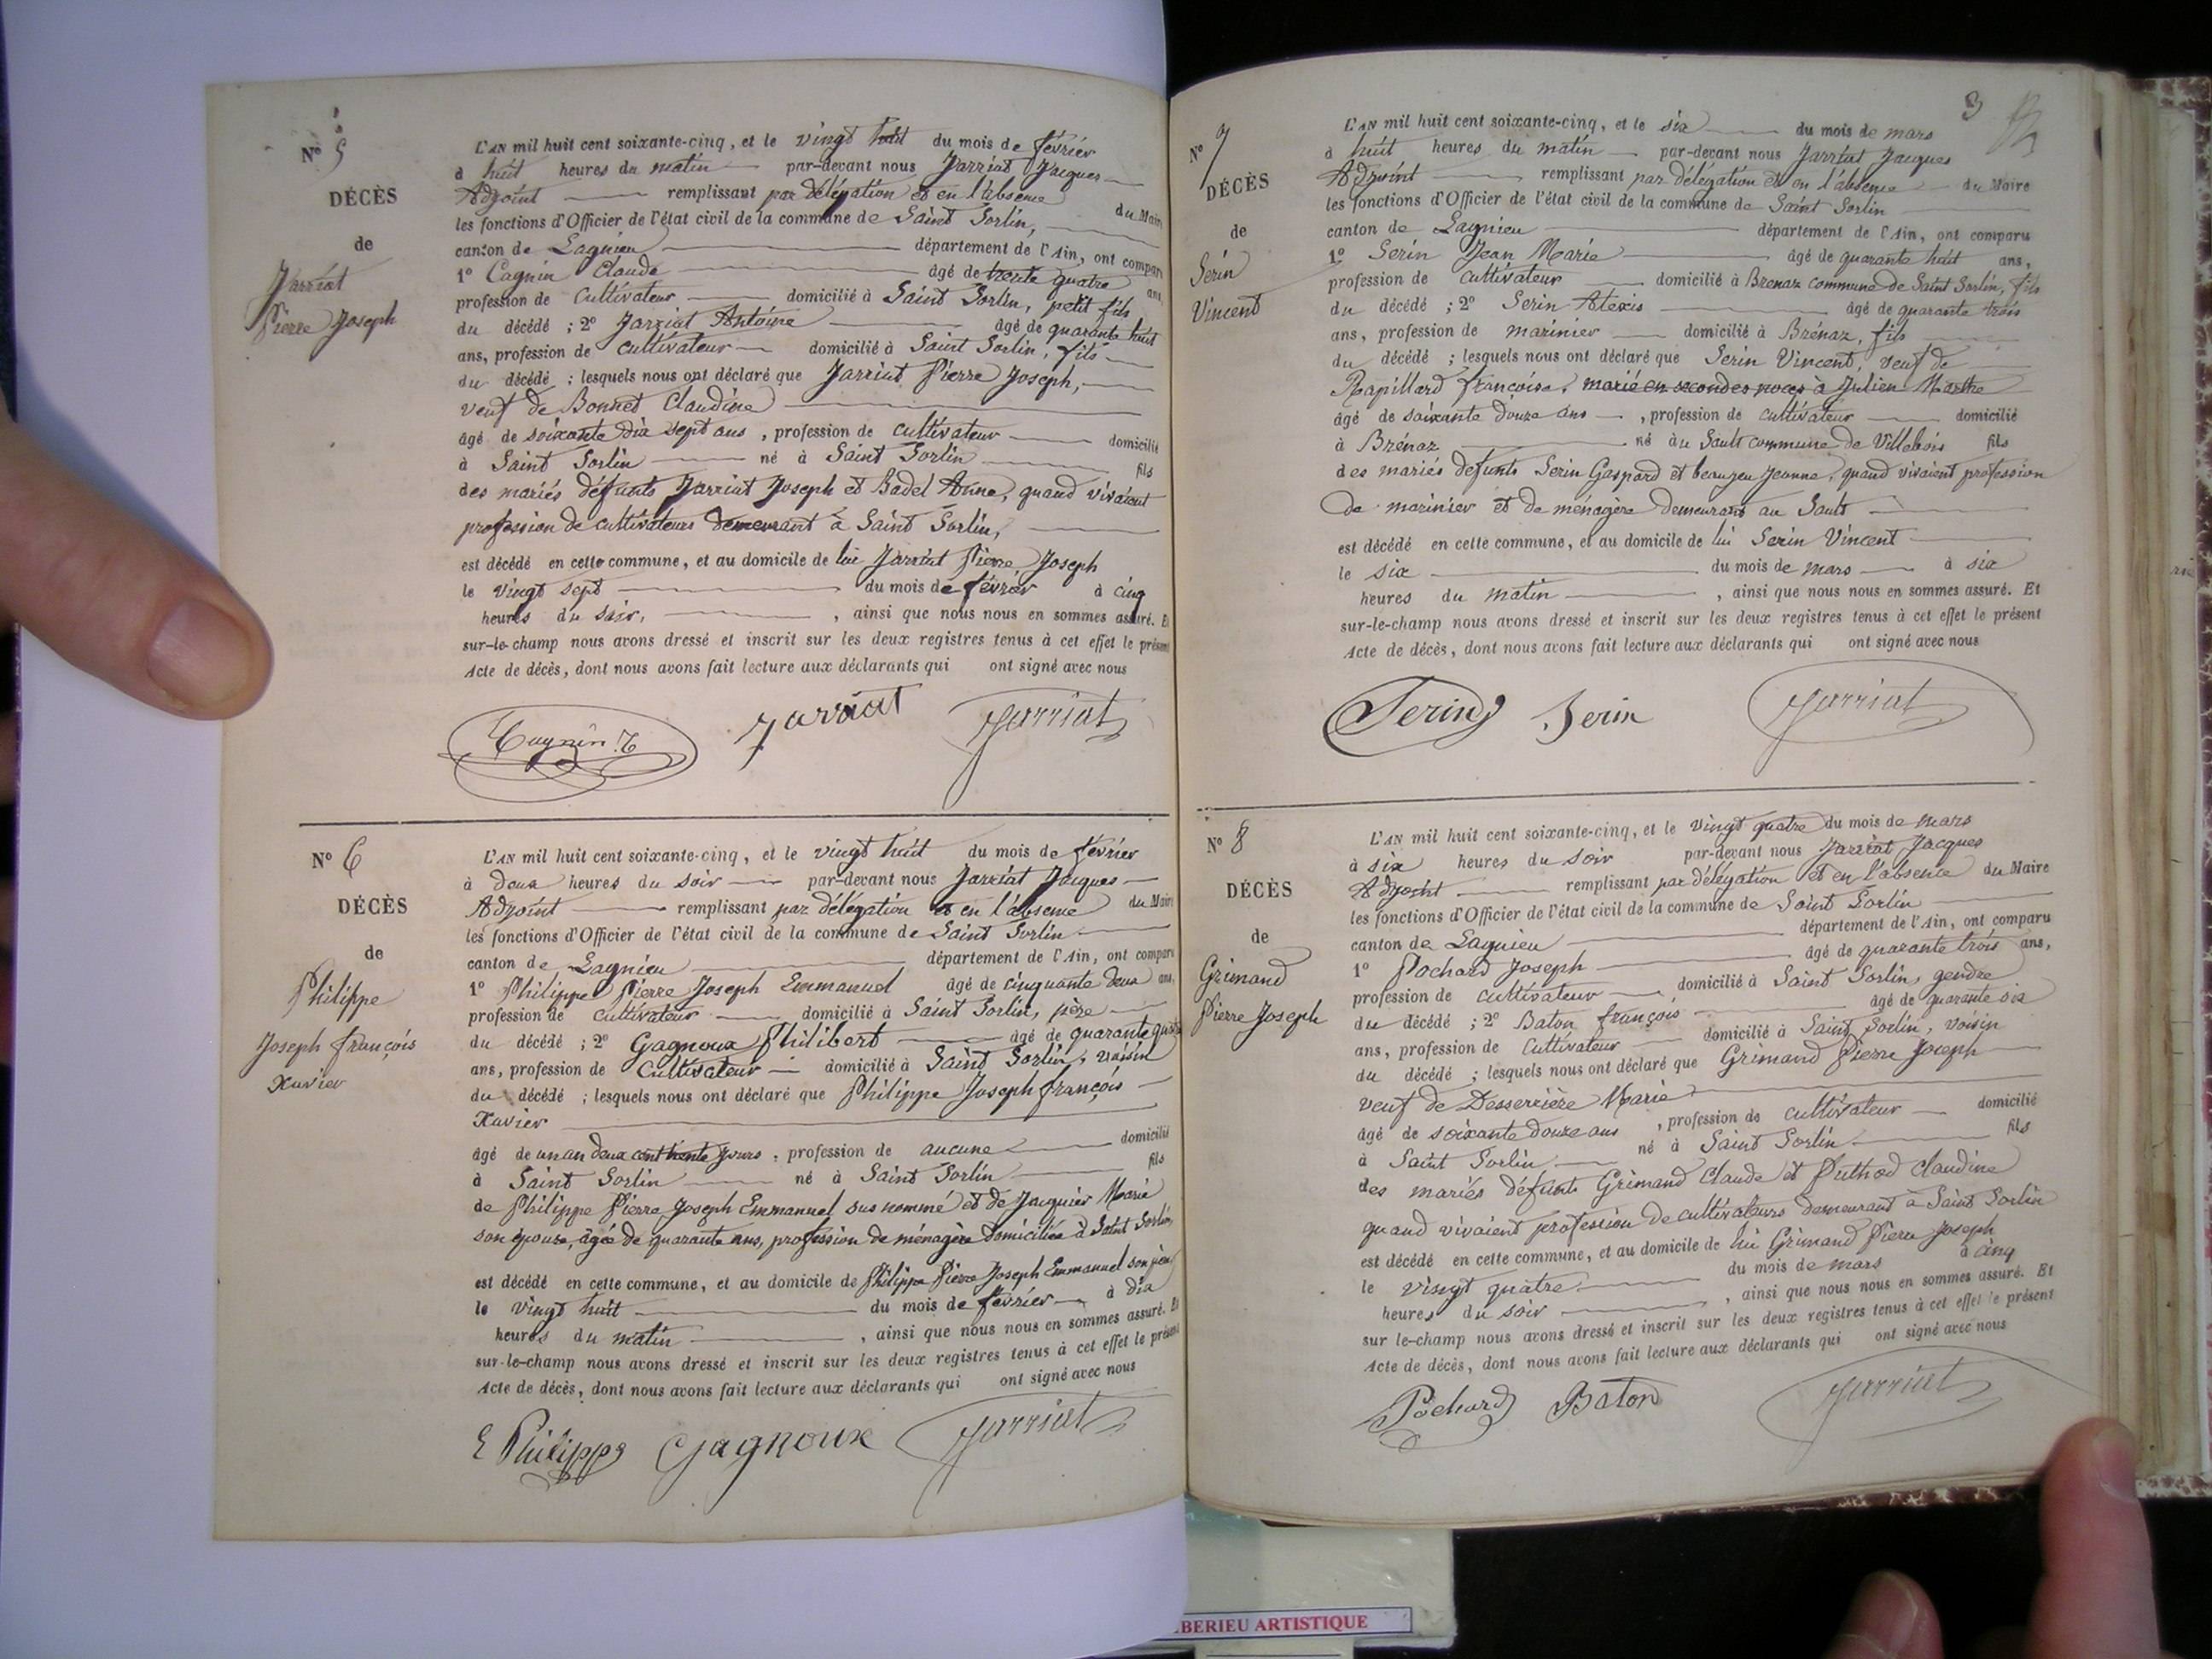 Nº 5
DÉCÈS
de
Jarriat
Pierre Joseph
L'AN mil huit cent soixante-cinq, et le vingt huit du mois de février
à huit heures du matin par-devant nous Jarriat Jacques
Adjoint remplissant par délégation et en l'absence du Maire
les fonctions d'Officier de l'état civil de la commune de Saint Sorlin,
canton de Lagnieu département de l'Ain, ont comparu
1º Cagnin Claude âgé de trente quatre ans,
profession de cultivateur domicilié à Saint Sorlin, petit fils
du décédé ; 2º Jarriat Antoine âgé de quarante huit
ans, profession de cultivateur domicilié à Saint Sorlin, fils
du décédé ; lesquels nous ont déclaré que Jarriat Pierre Joseph,
veuf de Bonnet Claudine
âgé de soixante dix sept ans, profession de cultivateur domicilié
à Saint Sorlin né à Saint Sorlin fils
des mariés défunts Jarriat Joseph et Badel Anne, quand vivaient
profession de cultivateurs demeurant à Saint Sorlin,
est décédé en cette commune, et au domicile de lui Jarriat Pierre Joseph
le vingt sept du mois de février à cinq
heures du soir, , ainsi que nous nous en sommes assuré. Et
sur-le-champ nous avons dressé et inscrit sur les deux registres tenus à cet effet le présent
Acte de décès, dont nous avons fait lecture aux déclarants qui ont signé avec nous
Jarriat Jarriat
Nº 6
DÉCÈS
de
Philippe
Joseph françois
Xavier
L'AN mil huit cent soixante-cinq, et le vingt huit du mois de février
à deux heures du soir par-devant nous Jarriat Jacques
Adjoint remplissant par délégation et en l'absence du Maire
les fonctions d'Officier de l'état civil de la commune de Saint Sorlin
canton de Lagnieu département de l'Ain, ont comparu
1º Philippe Pierre Joseph Emmanuel âgé de cinquante deux ans,
profession de cultivateur domicilié à Saint Sorlin, père
du décédé ; 2º Gagnoux Philibert âgé de quarante quatre
ans, profession de cultivateur domicilié à Saint Sorlin, voisin
du décédé ; lesquels nous ont déclaré que Philippe Joseph françois
Xavier
âgé de un an deux cent trente jours, profession de aucune domicilié
à Saint Sorlin né à Saint Sorlin fils
de Philippe Pierre Joseph Emmanuel sus nommé et de Jacquier Marie
son épouse, âgée de quarante ans, profession de ménagère domiciliée à Saint Sorlin,
est décédé en cette commune, et au domicile de Philippe Pierre Joseph Emmanuel son père
le vingt huit du mois de février à dix
heures du matin , ainsi que nous nous en sommes assuré. Et
sur-le-champ nous avons dressé et inscrit sur les deux registres tenus à cet effet le présent
Acte de décès, dont nous avons fait lecture aux déclarants qui ont signé avec nous
E Philippe Gagnoux Jarriat
3
Nº 7
DÉCÈS
de
Serin
Vincent
L'AN mil huit cent soixante-cinq, et le six du mois de mars
à huit heures du matin par-devant nous Jarriat Jacques
Adjoint remplissant par délégation et en l'absence du Maire
les fonctions d'Officier de l'état civil de la commune de Saint Sorlin
canton de Lagnieu département de l'Ain, ont comparu
1º Serin Jean Marie âgé de quarante huit ans,
profession de cultivateur domicilié à Brenaz commune de Saint Sorlin, fils
du décédé ; 2º Serin Alexis âgé de quarante trois
ans, profession de marinier domicilié à Brénaz, fils
du décédé ; lesquels nous ont déclaré que Serin Vincent, veuf de
Rapillard françoise, marié en secondes noces à Julien Marthe
âgé de soixante douze ans, profession de cultivateur domicilié
à Brénaz né au Sault commune de Villebois fils
des mariés défunts Serin Gaspard et beaujeu Jeanne, quand vivaient profession
de marinier et de ménagère demeurant au Sault
est décédé en cette commune, et au domicile de lui Serin Vincent
le six du mois de mars à six
heures du matin , ainsi que nous nous en sommes assuré. Et
sur-le-champ nous avons dressé et inscrit sur les deux registres tenus à cet effet le présent
Acte de décès, dont nous avons fait lecture aux déclarants qui ont signé avec nous
Serin Serin Jarriat
Nº 8
DÉCÈS
de
Grimand
Pierre Joseph
L'AN mil huit cent soixante-cinq, et le vingt quatre du mois de mars
à six heures du soir par-devant nous Jarriat Jacques
Adjoint remplissant par délégation et en l'absence du Maire
les fonctions d'Officier de l'état civil de la commune de Saint Sorlin
canton de Lagnieu département de l'Ain, ont comparu
1º Pochard Joseph âgé de quarante trois ans,
profession de cultivateur domicilié à Saint Sorlin, gendre
du décédé ; 2º Baton françois âgé de quarante six
ans, profession de cultivateur domicilié à Saint Sorlin, voisin
du décédé ; lesquels nous ont déclaré que Grimand Pierre Joseph
veuf de Desserrière Marie
âgé de soixante douze ans, profession de cultivateur domicilié
à Saint Sorlin né à Saint Sorlin fils
des mariés défunts Grimand Claude et Puthod Claudine
quand vivaient profession de cultivateurs demeurant à Saint Sorlin
est décédé en cette commune, et au domicile de lui Grimand Pierre Joseph
le vingt quatre du mois de mars à cinq
heures du soir , ainsi que nous nous en sommes assuré. Et
sur le-champ nous avons dressé et inscrit sur les deux registres tenus à cet effet le présent
Acte de décès, dont nous avons fait lecture aux déclarants qui ont signé avec nous
Pochard Baton Jarriat
BERIEU ARTISTIQUE